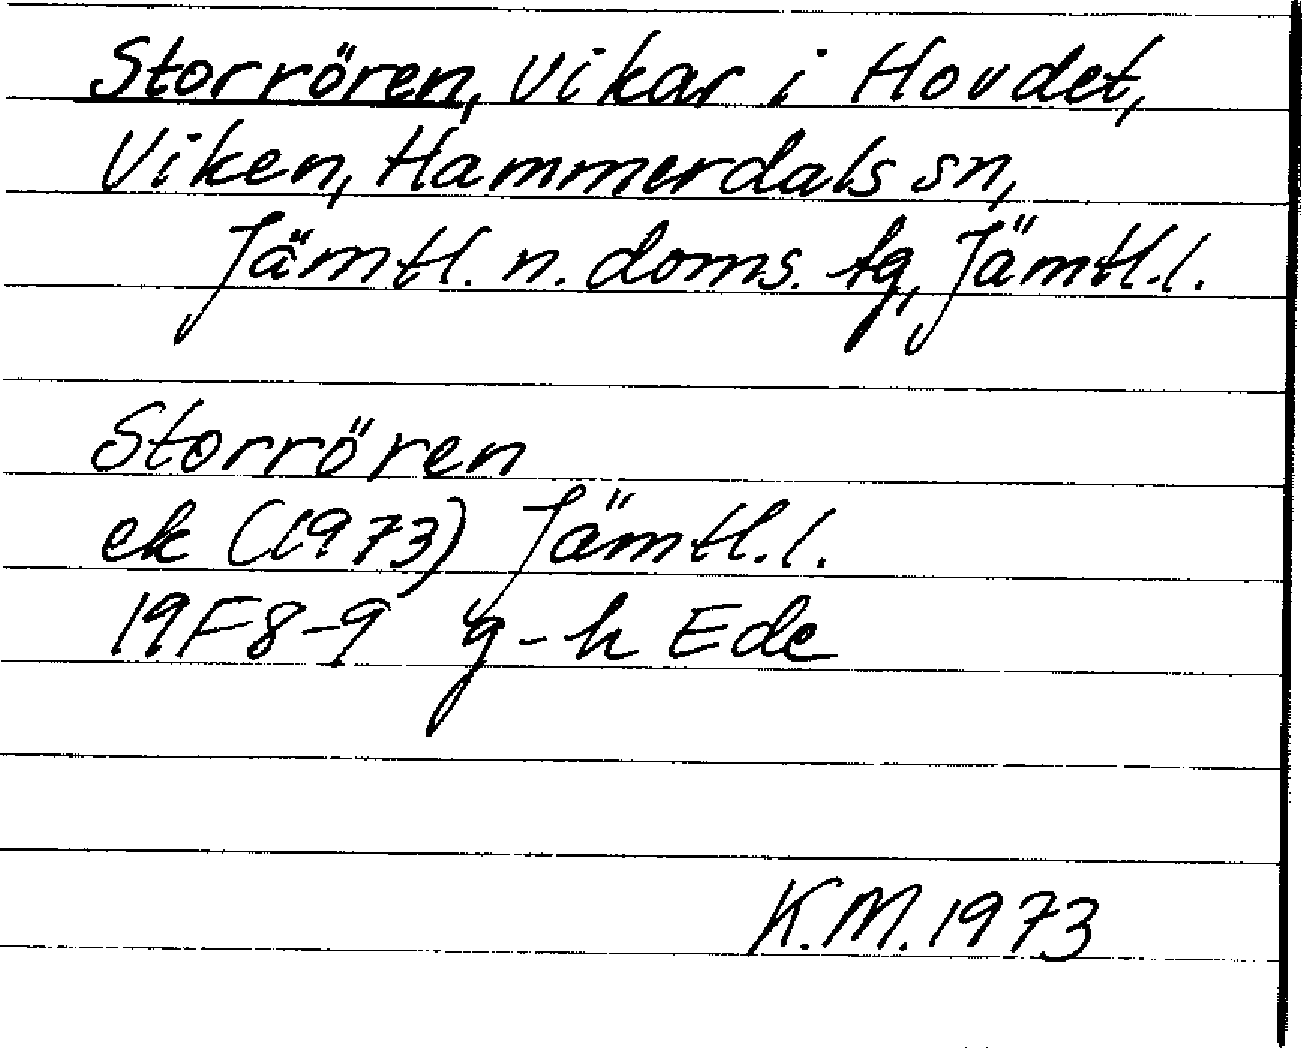 Storrören, vikar i Hovdet,
Viken, Hammerdals sn,
Jämtl. n. doms. tg, Jämtl. l.
Storrören
ek (1973) Jämtl. l.
19F8-9 g-h Ede
K.M. 1973